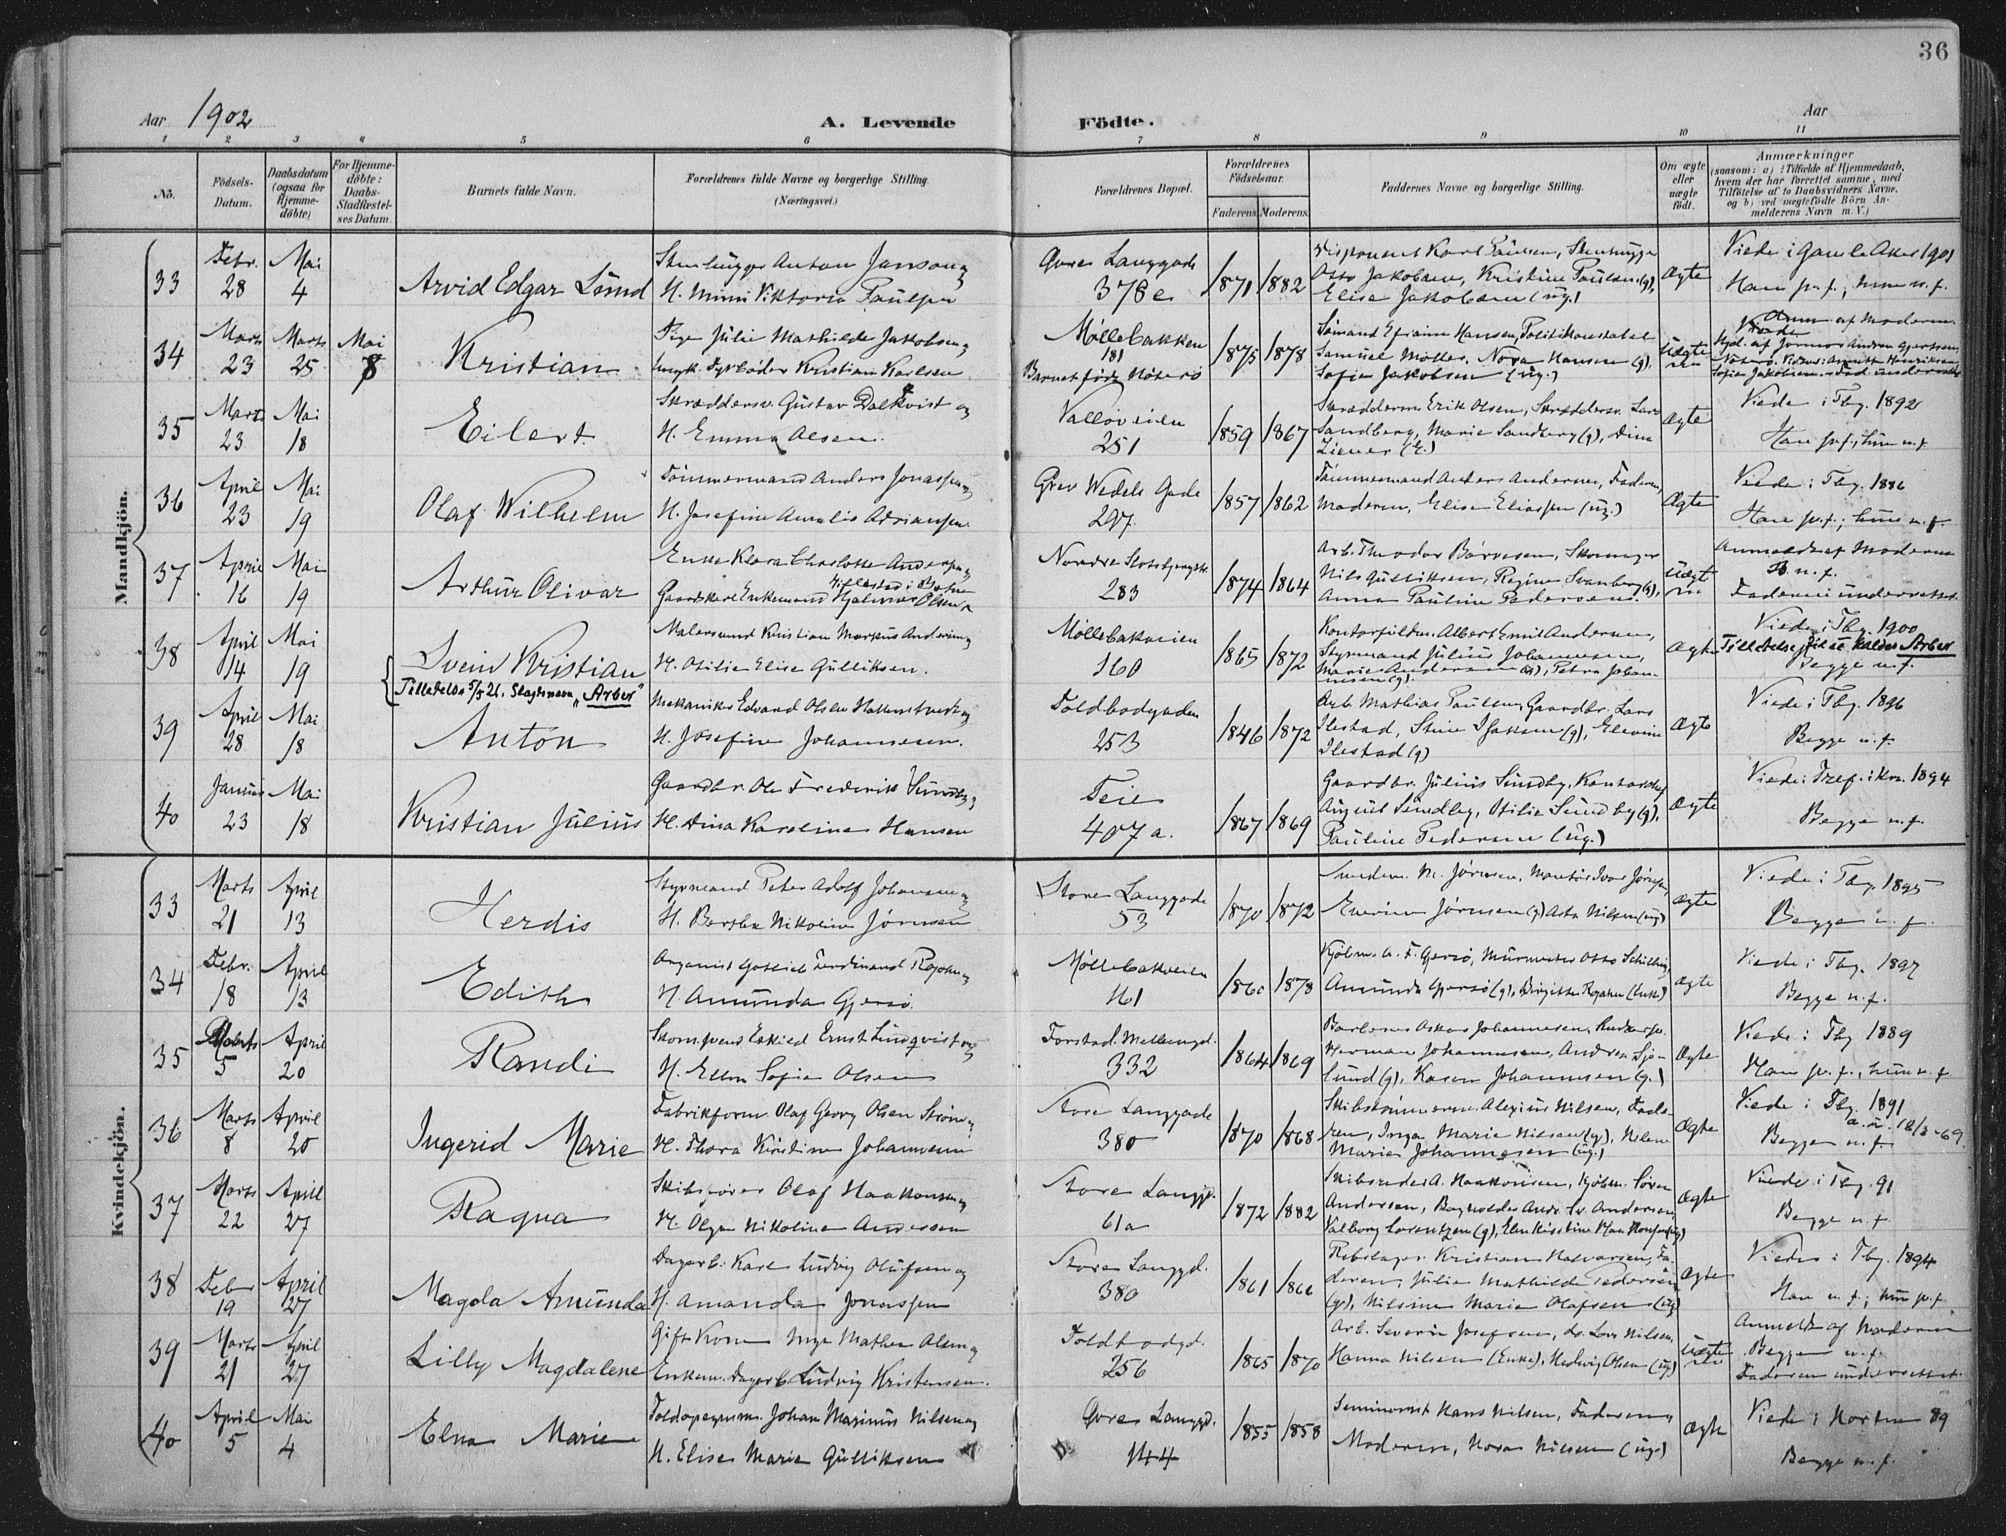 36
Aar 1902
A. Levende Födte.
Aar
1 2 3 4 5 6 7 8 9 10 11
No.
Födsels-Datum.
Daabsdatum (ogsaa for Hjemmedöbte)
For Hjemmedöbte: Daabs-Stadfæstelses Datum.
Barnets fulde Navn.
Forældrenes fulde Navne og borgerlige Stilling. (Næringsvei.)
Forældrenes Bopæl.
Forældrenes Födselsaar.
Faderens. Moderens.
Faddernes Navne og borgerlige Stilling.
Om ægte eller uægte födt.
Anmærkninger
(saasom: a) i Tilfælde af Hjemmedaab,
hvem der har forrettet samme, med
Tilföielse af to Daabsvidners Navne,
og b) ved uægtefödte Börn Anmelderens Navn m.V.)
Mandkjön.
33 Febr. 28 Mai 4 Arvid Edgar Lund
Anton Janson og
H. Mimi Viktoria Paulsen
Langgade 378 e 1871 1882
Karl Paulsen,
Otto Jakobsen, Kristine Paulsen (g),
Elise Jakobsen (ug.)
Ægte
Viede i Gamle Aker 1901
Han p.f., hun n.f.
34 Marts 23 Marts 25 Mai 8 Kristian
Pige Julie Mathilde Jakobsen og
ungk. Fyrbøder Kristian Karlsen
Møllebakken 181
Barnet født Nøterø
1875 1878
Sømand Efraim Hansen, Politikonstabel
Samuel Møller, Nora Hansen (g),
Sofie Jakobsen (ug.)
Uægte
af Moderen
35 Marts 23 Mai 18 Eilert
Skræddersv. Gustav Dalkvist og
H. Emma Olsen
Valløveien 251 1859 1867
Skrædderm. Erik Olsen, Skræddersv. Lars
Sandberg, Marie Sandberg (g),
Ægte
Viede i Tbg. 1892
Han p.f., hun n.f.
36 April 23 Mai 19 Olaf Wilhelm
Tømmermand Anders Jonassen og
H. Josefine Amalie Adriansen
Grev Wedels Gade 297. 1857 1862
Tømmermand Anders Andersen, Faderen,
Moderen, Elise Eliassen (ug.)
Ægte
Viede i Tbg. 1886
Han p.f., hun n.f.
37 April 16 Mai 19 Arthur Olivar
Enke Klara Charlotte Andersen og
Gaardskarl Enkemand Hjalmar Olsen
Nordre Slotsbjergsg. 283 1874 1864
Arb. Theodor Børresen, Skomager
Nils Gulliksen, Regine Svanberg (g),
Anna Pauline Pedersen
Uægte
Anmeldt af Moderen
B. n.f.
Faderen underrettet
38 April 14 Mai 19 Svein Kristian
Tilladelse 5/5 26. Slagtsnavn „Arber"
Malersvend Kristian Markus Andersen og
H. Otilie Elise Gulliksen.
Møllebakveien 160 1865 1872
Albert Emil Andersen,
Styrmand Julius Johannesen,
Marie Andersen (g), Petra Johannesen (g).
Ægte
Viede i Tbg. 1900
Tilladelse til at kaldes Arber
Begge n.f.
39 April 28 Mai 18 Anton
Mekaniker Edvard Olsen og
H. Josefine Johannesen.
Toldbodgaden 253 1846 1872
Arb. Mathias Paulsen, Gaardbr. Lars
Ilestad, Stine Isaksen (g),
Ilestad (g)
Ægte
Viede i Tbg. 1896
Begge n.f.
40 Januar 23 Mai 18 Kristian Julius
Gaardbr. Ole Frederik Sundby og
H. Dina Karoline Hansen
Teie 407 a. 1867 1869
Gaardbr. Julius Sundby,
August Sundby, Otilie Sundby (g),
Pauline Pedersen (ug.)
Ægte
1894
Begge n.f.
Kvindekjön.
33 Marts 21 April 13 Herdis
Styrmand Peter Adolf Johansen og
H. Bertha Nikoline Jørnsen
Store Langgade 53 1870 1872
Jørnsen (g) Asta Nilsen (ug)
Ægte
Viede i Tbg. 1895
Begge n.f.
34 Febr. 18 April 13 Edith
Organist Gotlieb Ferdinand Rojahn og
H. Amunda Gjersø
Møllebakveien 161 1860 1878
Kjøbm. A. F. Gjersø, Murmester Otto Schilling,
Amunda Gjersø (g), Birgitte Rojahn (Enke)
Ægte
Viede i Tbg. 1897
Begge n.f.
35 Marts 5 April 20 Randi
Eskild Ernst Lindqvist og
H. Ellen Sofie Olsen
332 1864 1869
Oskar Johannesen,
Herman Johannesen, Andrea Sjølund (g), Karen Johannesen (g.)
Ægte
Viede i Tbg 1889
Han p.f., hun n.f.
36 Marts 8 April 20 Ingerid Marie
Fabrikform. Olaf Georg Olsen Strøm og
H. Thora Kristine Johannesen
Store Langgade 380 1870 1868
Skibstømmerm. Alexius Nilsen, Faderen, Inga Marie Nilsen (g),
Marie Johannesen (ug.)
Ægte
Viede i Tbg. 1891
Begge n.f.
37 Marts 22 April 27 Ragna
Skibsfører Olaf Haakonsen og
H. Olga Nikoline Andersen
Store Langg. 61a 1872 1882
Skibsreder A. Haakonsen, Kjøbm. Søren
Andersen,
Valborg Lorentzen (g),
Ægte
Viede i Tbg. 91
Begge n.f.
38 Febr 19 April 27 Magda Amunda
Dagarb. Karl Ludvig Olufsen og
H. Amanda Jonassen
Store Langgd. 380 1861 1866
Rebslager Kristian Halvorsen, Faderen, Julie Mathilde Pedersen
(g), Nilsine Marie Olafsen (ug)
Ægte
Viede i Tbg. 1894
Han n.f., hun p.f.
39 Marts 21 April 27 Lilly Magdalene
Gift Kone Inga Mathea Olsen og
Enkem. Dagarb. Ludvig Kristensen.
Toldbodgd. 256 1865 1870
Arb. Severin Josefsen, Lars Nilsen,
Hanna Nilsen (Enke), Hedvig Olsen (ug)
Uægte
Anmeldt af Moderen
Begge n.f.
Faderen underrettet.
40 April 5 Mai 4 Elna Marie
Toldopsynsm. Johan Marinus Nilsen og
H. Elise Marie Gulliksen
Langgd. 144 1855 1858
Seminarist Hans Nilsen, Faderen,
Moderen, Nora Nilsen (ug)
Ægte
Viede i Horten 89
Begge n.f.